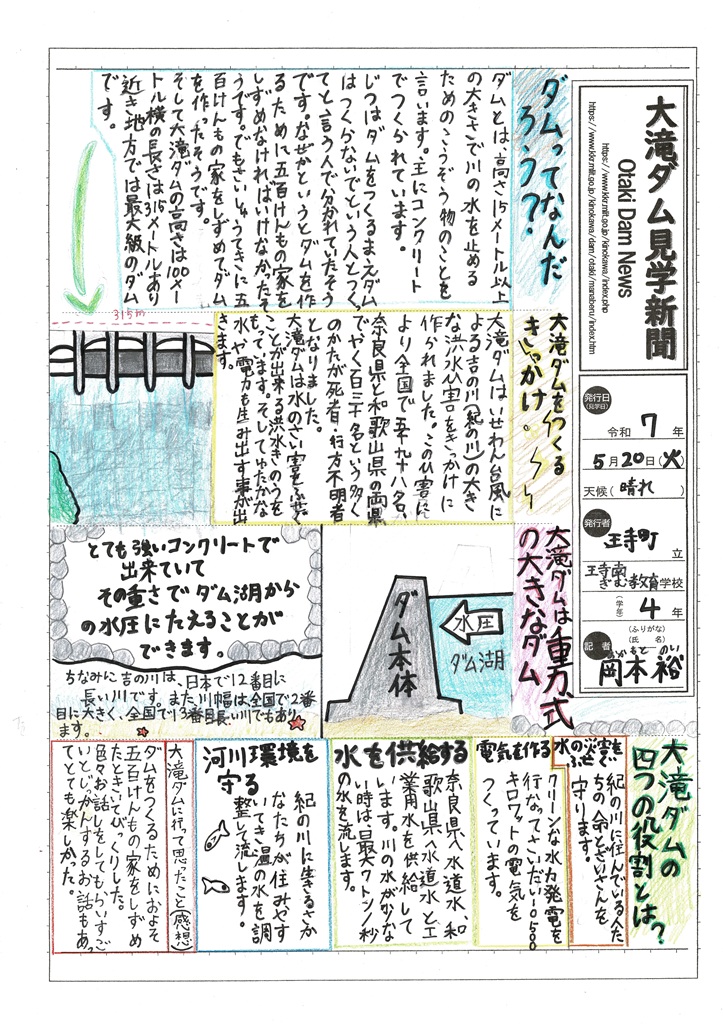 大滝ダム見学新聞
Otaki Dam News
https://www.kkr.mlit.go.jp/kinokawa/index.php
https://www.kkr.mlit.go.jp/kinokawa/dam/otaki/manaberu/index.htm
発行日
(見学日)
令和 7 年
5月20日(火)
天候(晴れ)
発行者
王寺町 立
王寺南
ぎむ教育学校
(学年) 4 年
記者
(ふりがな)
(氏名)
おかもと のり
岡本 裕
ダムってなんだ
ろう?
ダムとは、高さ15メートル以上
の大きさで川の水を止める
ためのこうぞう物のことを
言います。主にコンクリート
でつくられています。
じつはダムをつくるまえダム
はつくらないでという人とつく
てと言う人で分かれていたそう
です。なぜかというとダムを作
るために五百けんもの家を
しずめなければいけなかったそ
うです。でもさいしゅうてきに五
百けんもの家をしずめてダム
を作ったそうです。
そして大滝ダムの高さは100メー
トル横の長さは315メートルあり
近き地方では最大級のダム
です。
315m
大滝ダムをつくる
きっかけ。
大滝ダムはいせわん台風に
よる吉の川(紀の川)の大き
な洪水ひ害をきっかけに
作られました。このひ害に
より全国で五千九十八名、
奈良県と和歌山県の両県
でやく百三十名という多く
のかたが死者・行方不明者
となりました。
大滝ダムは水のさい害をふせぐ
ことが出来る洪水きのうを
もっています。そしてゆたかな
水や電力も生み出す事が出
きます。
大滝ダムは重力式
の大きなダム
水圧
ダム湖
ダム本体
とても強いコンクリートで
出来ていて
その重さでダム湖から
の水圧にたえることが
できます。
ちなみに吉の川は、日本で12番目に
長い川です。また川幅は、全国で2番
目に大きく、全国で13番目長い川でもあり
ます。
大滝ダムの
四つの役割とは?
水の災害をふせぐ
紀の川に住んでいる人た
ちの命とざいさんを
守ります。
電気を作る
クリーンな水力発電を
行なってさいだい10500
キロワットの電気を
つくっています。
水を供給する
奈良県へ水道水、和
歌山県へ水道水と工
業用水を供給して
います。川の水が少な
い時は、最大クトン/秒
の水を流します。
河川環境を
守る
紀の川に生きるさか
なたちが住みやす
いてき温の水を調
整して流します。
大滝ダムに行って思ったこと(感想)
ダムをつくるためにおよそ
五百けんもの家をしずめ
たときいてびっくりした。
色々お話しをしてもらいすご
いとじっかんするお話もあっ
てとても楽しかった。